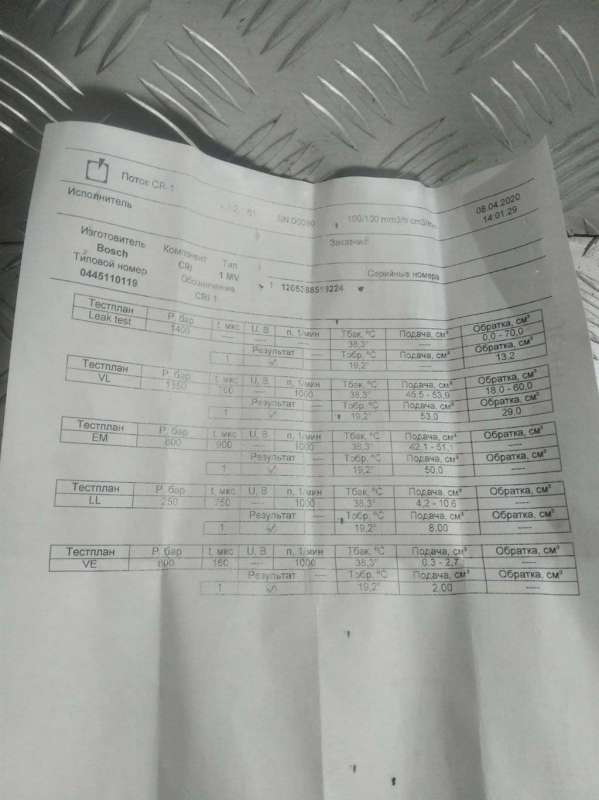 Поток CR-1
SN 00080
100/100 mm3/s cm3/
08.04.2020
14:01:29
Исполнитель
Заказчик
Изготовитель Компонент Тип
Bosch CRI 1 MV
Типовой номер Обозначение Серийные номера
0445110119 CRI 1 1
Тестплан P, бар t, мкс U, В n, 1/мин Тбак, °C Подача, см³ Обратка, см³
Leak test 1400 ---- ---- ---- 38,3° ---- 0,0 - 70,0
Результат ---- Тобр, °C Подача, см³ Обратка, см³
1 ✓ 19,2° ---- 13,2
Тестплан P, бар t, мкс U, В n, 1/мин Тбак, °C Подача, см³ Обратка, см³
VL 1350 ---- 1000 38,3° 18,0 - 60,0
Результат ---- Тобр, °C Подача, см³ Обратка, см³
1 ✓ 19,2° 53,0 29,0
Тестплан P, бар t, мкс U, В n, 1/мин Тбак, °C Подача, см³ Обратка, см³
EM 800 900 ---- 1000 38,3° 42,1 - 51,1 ----
Результат ---- Тобр, °C Подача, см³ Обратка, см³
1 ✓ 19,2° 50,0 ----
Тестплан P, бар t, мкс U, В n, 1/мин Тбак, °C Подача, см³ Обратка, см³
LL 250 750 ---- 1000 38,3° 4,2 - 10,6 ----
Результат ---- Тобр, °C Подача, см³ Обратка, см³
1 ✓ 19,2° 8,00 ----
Тестплан P, бар t, мкс U, В n, 1/мин Тбак, °C Подача, см³ Обратка, см³
VE 800 160 ---- 1000 38,3° 0,3 - 2,7 ----
Результат ---- Тобр, °C Подача, см³ Обратка, см³
1 ✓ 19,2° 2,00 ----